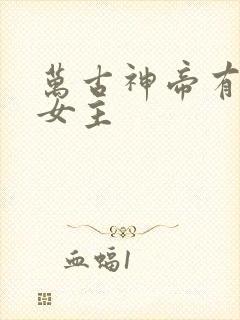 萬古神帝有
女主
血蝠1